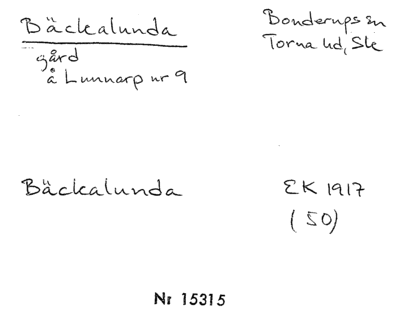 Bäckalunda
gård
å Lunnarp nr 9
Bonderups sn
Torna hd, Ske
Bäckalunda
EK 1917
(50)
Nr 15315